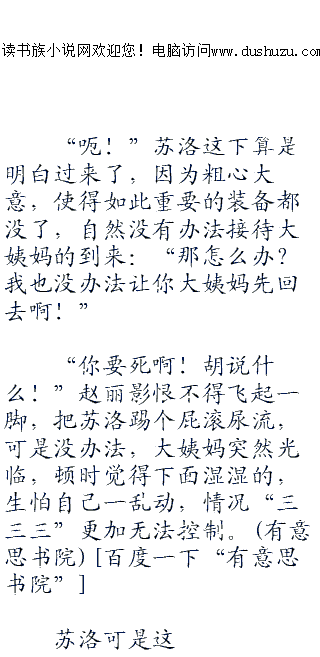 读书族小说网欢迎您！电脑访问www.dushuzu.com
“呃！”苏洛这下算是
明白过来了，因为粗心大
意，使得如此重要的装备都
没了，自然没有办法接待大
姨妈的到来：“那怎么办？
我也没办法让你大姨妈先回
去啊！”
“你要死啊！胡说什
么！”赵丽影恨不得飞起一
脚，把苏洛踢个屁滚尿流，
可是没办法，大姨妈突然光
临，顿时觉得下面湿湿的，
生怕自己一乱动，情况“三
三三”更加无法控制。(有意
思书院)[百度一下“有意思
书院”]
苏洛可是这